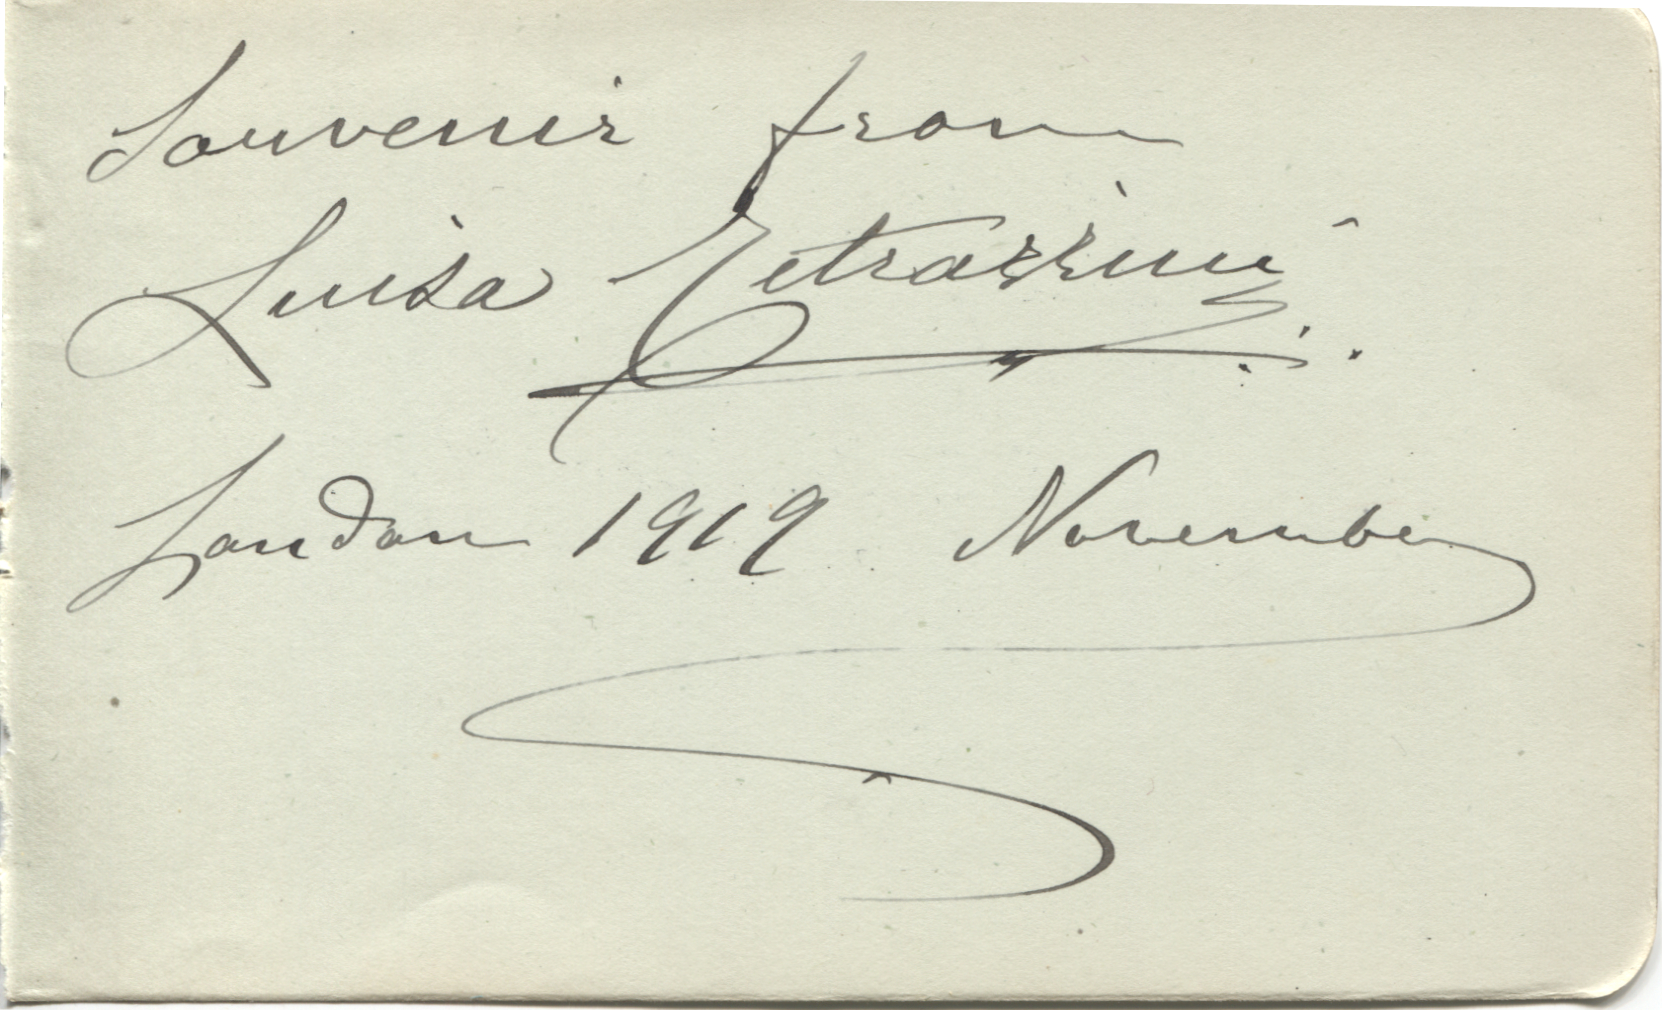 Souvenir from
Luisa Tetrazzini
London 1919 November